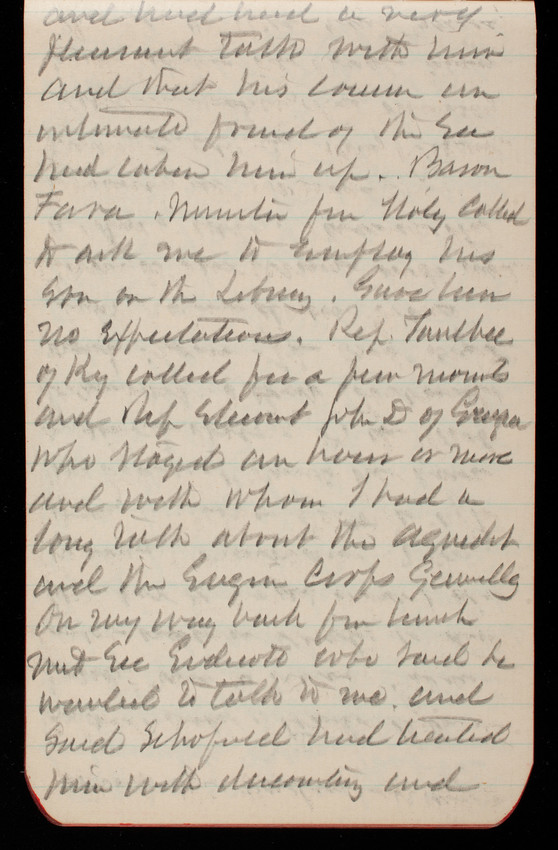 and had had a very
pleasant talk with him
and that his cousin an
intimate friend of the Sec
had taken him up. Baron
Fava. Minister from Italy called
to ask me to employ his
son on the Library. Gave him
no expectations. Rep. Taulbee
of Ky called for a few moments
and Rep Stewart John D of Georgia
who stayed an hour or more
and with whom I had a
long talk about the aqueduct
and the Engin Corps Generally
On my way back from lunch
met Sec Endicott who said he
wanted to talk to me. and
said Schofield had treated
him with discourtesy and